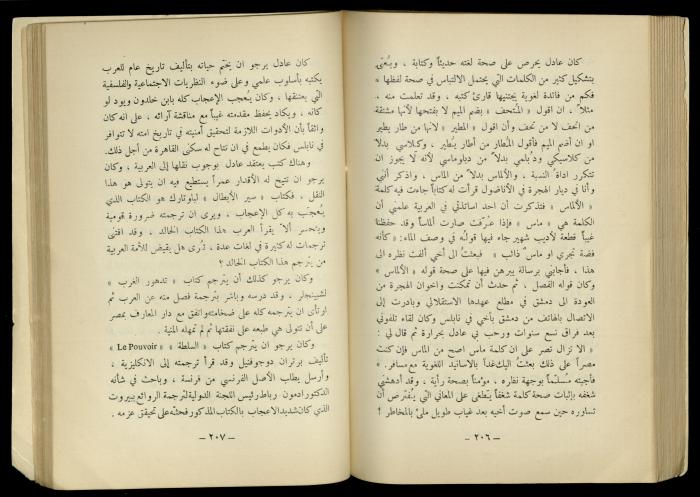 كان عادل يحرص على صحة لغته حديثاً وكتابة ، ويُعنى
بتشكيل كثير من الكلمات التي يحتمل الالتباس في صحة لفظها ،
فكم من فائدة لغوية يجتنيها قارئ كتبه ، وقد تعلمت منه ،
مثلاً ، ان اقول « المُتحف » بضم الميم لا بفتحها لأنها مشتقة
من اتحف لا من تحف وأن اقول « المطير » لأنها من طار يطير
او ان اضم الميم فأقول المُطار من أطار يُطير ، وكلاسي بدلاً
من كلاسيكي ودبلمي بدلاً من دبلوماسي لأنه لا يجوز ان
تتكرر اداة النسبة ، والألماس بدلاً من الماس ، واذكر أنني
وأنا في ديار الهجرة في الأناضول قرأت له كتاباً جاءت فيه كلمة
« الألماس » فتذكرت أن احد اساتذتي في العربية علمني أن
الكلمة هي « ماس » فإذا عرّفت صارت ألماساً وقد حفظنا
غيباً قطعة لأديب شهير جاء فيها قوله في وصف الماء: «كأنه
فضة تجري او ماسٌ ذائب » فبعثت الى أخي ألفت نظره الى
هذا ، فأجابني برسالة يبرهن فيها على صحة قوله « الألماس »
وكان قوله الفصل ، ثم حدث أن تمكنت واخوان الهجرة من
العودة الى دمشق في مطلع عهدها الاستقلالي وبادرت إلى
الاتصال بالهاتف من دمشق بأخي في نابلس وكان لقاء تلفوني
بعد فراق تسع سنوات ورحب بي عادل بحرارة ثم قال لي :
« الا تزال تصر على ان كلمة ماس اصح من الماس فإن كنت
مصراً على ذلك بعثت اليك غداً بالأسانيد اللغوية مع مسافر. »
فأجبته مسلّماً بوجهة نظره ، مؤمناً بصحة رأيه ، وقد أدهشني
شغفه بإثبات صحة كلمة شغفاً يطغى على المعاني التي يُفترض أن
تساوره حين سمع صوت أخيه بعد غياب طويل ملئ بالمخاطر !
– ٢٠٦ –
كان عادل يرجو ان يختم حياته بتأليف تاريخ عام للعرب
يكتبه بأسلوب علمي وعلى ضوء النظريات الاجتماعية والفلسفية
التي يعتنقها ، وكان يُعجب الإعجاب كله بابن خلدون ويود لو
كانه ، ويكاد يحفظ مقدمته غيباً مع مناقشة آرائه ، على انه كان
واثقاً بأن الأدوات اللازمة لتحقيق أمنيته في تاريخ امته لا تتوافر
في نابلس فكان يطمع في ان تتاح له سكنى القاهرة من أجل ذلك.
وهناك كتب يعتقد عادل بوجوب نقلها إلى العربية ، وكان
يرجو ان تتيح له الأقدار عمراً يستطيع فيه ان يتولى هو هذا
النقل ، فكتاب « سير الأبطال » لبلوتارك هو الكتاب الذي
يُعجَب به كل الإعجاب ، ويرى ان ترجمته ضرورة قومية
ويتحسر ألا يقرأ العرب هذا الكتاب الخالد ، وقد اقتنى
ترجمات له كثيرة في لغات عدة ، تُرى هل يقيض للأمة العربية
من يترجم هذا الكتاب الخالد ؟
وكان يرجو كذلك أن يترجم كتاب « تدهور الغرب »
لشبينجلر ، وقد درسه وباشر بترجمة فصل منه عن العرب ثم
ارتأى ان يترجمه كله على ضخامته واتفق مع دار المعارف بمصر
على أن تتولى هي طبعه على نفقتها ثم لم تمهله المنية .
وكان يرجو ان يترجم كتاب « السلطة » « Le Pouvoir »
تأليف برتران دوجوفنيل وقد قرأ ترجمته إلى الانكليزية ،
وأرسل يطلب الأصل الفرنسي من فرنسة ، وباحث في شأنه
الدكتور ادمون رباط رئيس اللجنة الدولية لترجمة الروائع ببيروت
الذي كان شديد الاعجاب بالكتاب المذكور فحثه على تحقيق عزمه .
– ٢٠٧ –